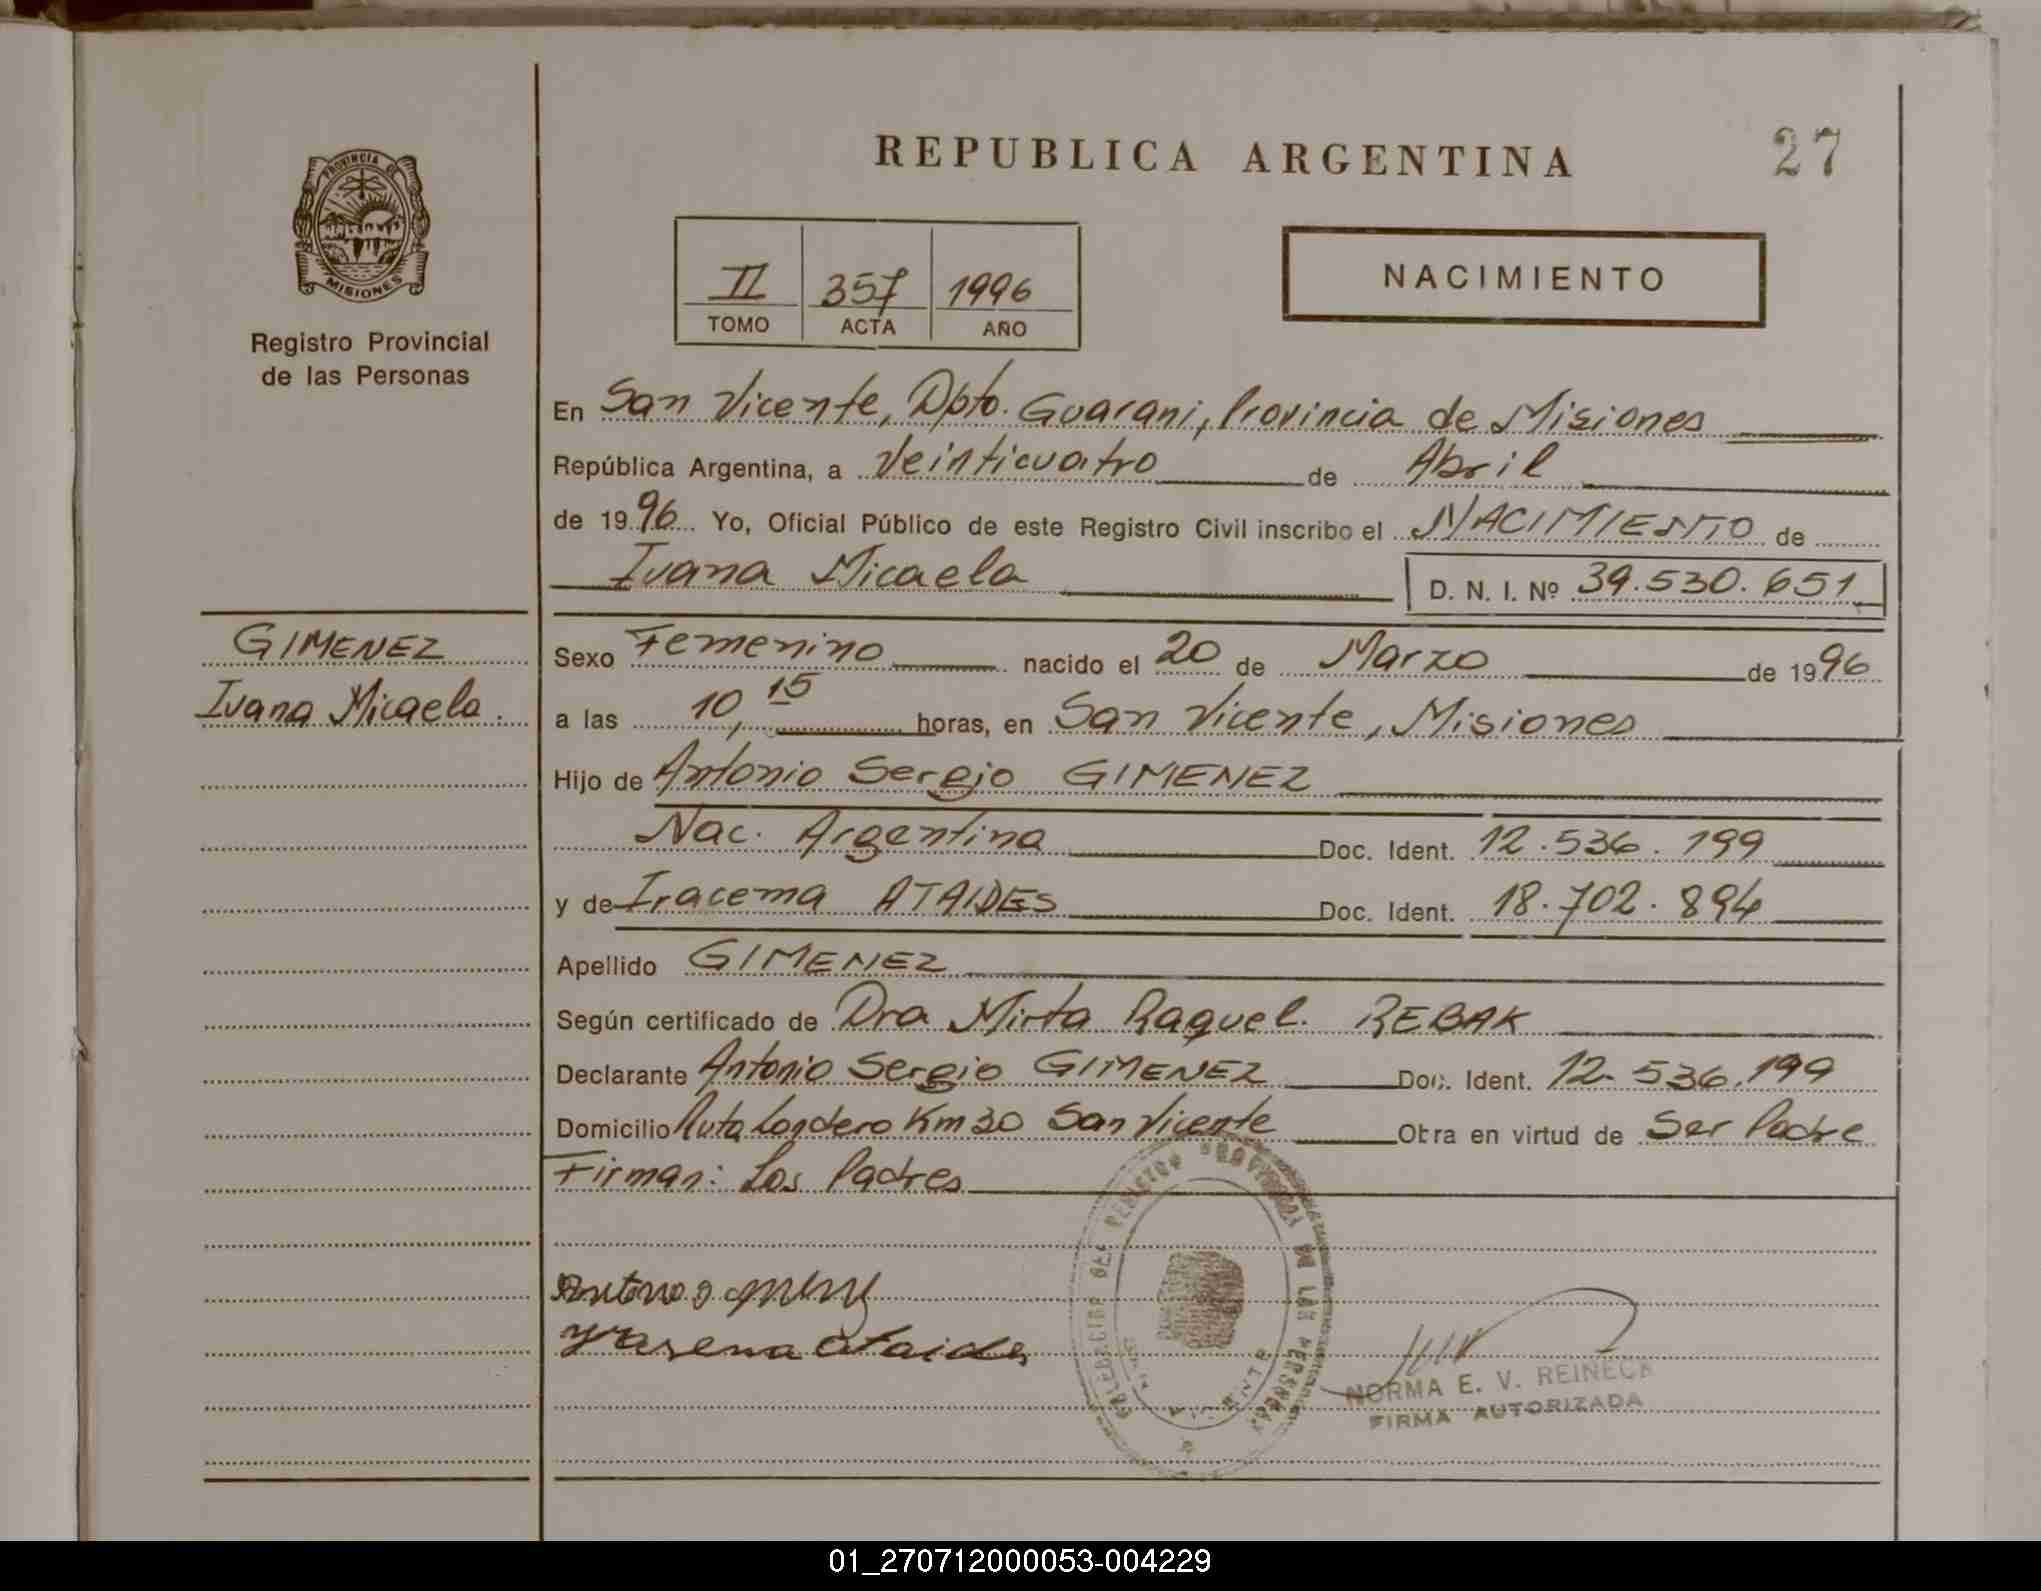 REPUBLICA ARGENTINA
27
PROVINCIA DE
MISIONES
Registro Provincial
de las Personas
II 357 1996
TOMO ACTA AÑO
NACIMIENTO
En San Vicente, Dpto. Guarani, Provincia de Misiones
República Argentina, a Veinticuatro de Abril
de 1996 Yo, Oficial Público de este Registro Civil inscribo el NACIMIENTO de
Ivana Micaela D. N. I. Nº 39.530.651
GIMENEZ
Ivana Micaela.
Sexo Femenino nacido el 20 de Marzo de 1996
a las 10,15 horas, en San Vicente, Misiones
Hijo de Antonio Sergio GIMENEZ
Nac. Argentina Doc. Ident. 12.536.199
y de Iracema ATAIDES Doc. Ident. 18.702.894
Apellido GIMENEZ
Según certificado de Dra Mirta Raquel. REBAK
Declarante Antonio Sergio GIMENEZ Doc. Ident. 12.536.199
Domicilio Ruta Km 30 San Vicente Obra en virtud de Ser Padre
Firman: Los Padres
DELEGACION DEL REGISTRO PROVINCIAL DE LAS PERSONAS
NORMA E. V. REINECK
FIRMA AUTORIZADA
01_270712000053-004229